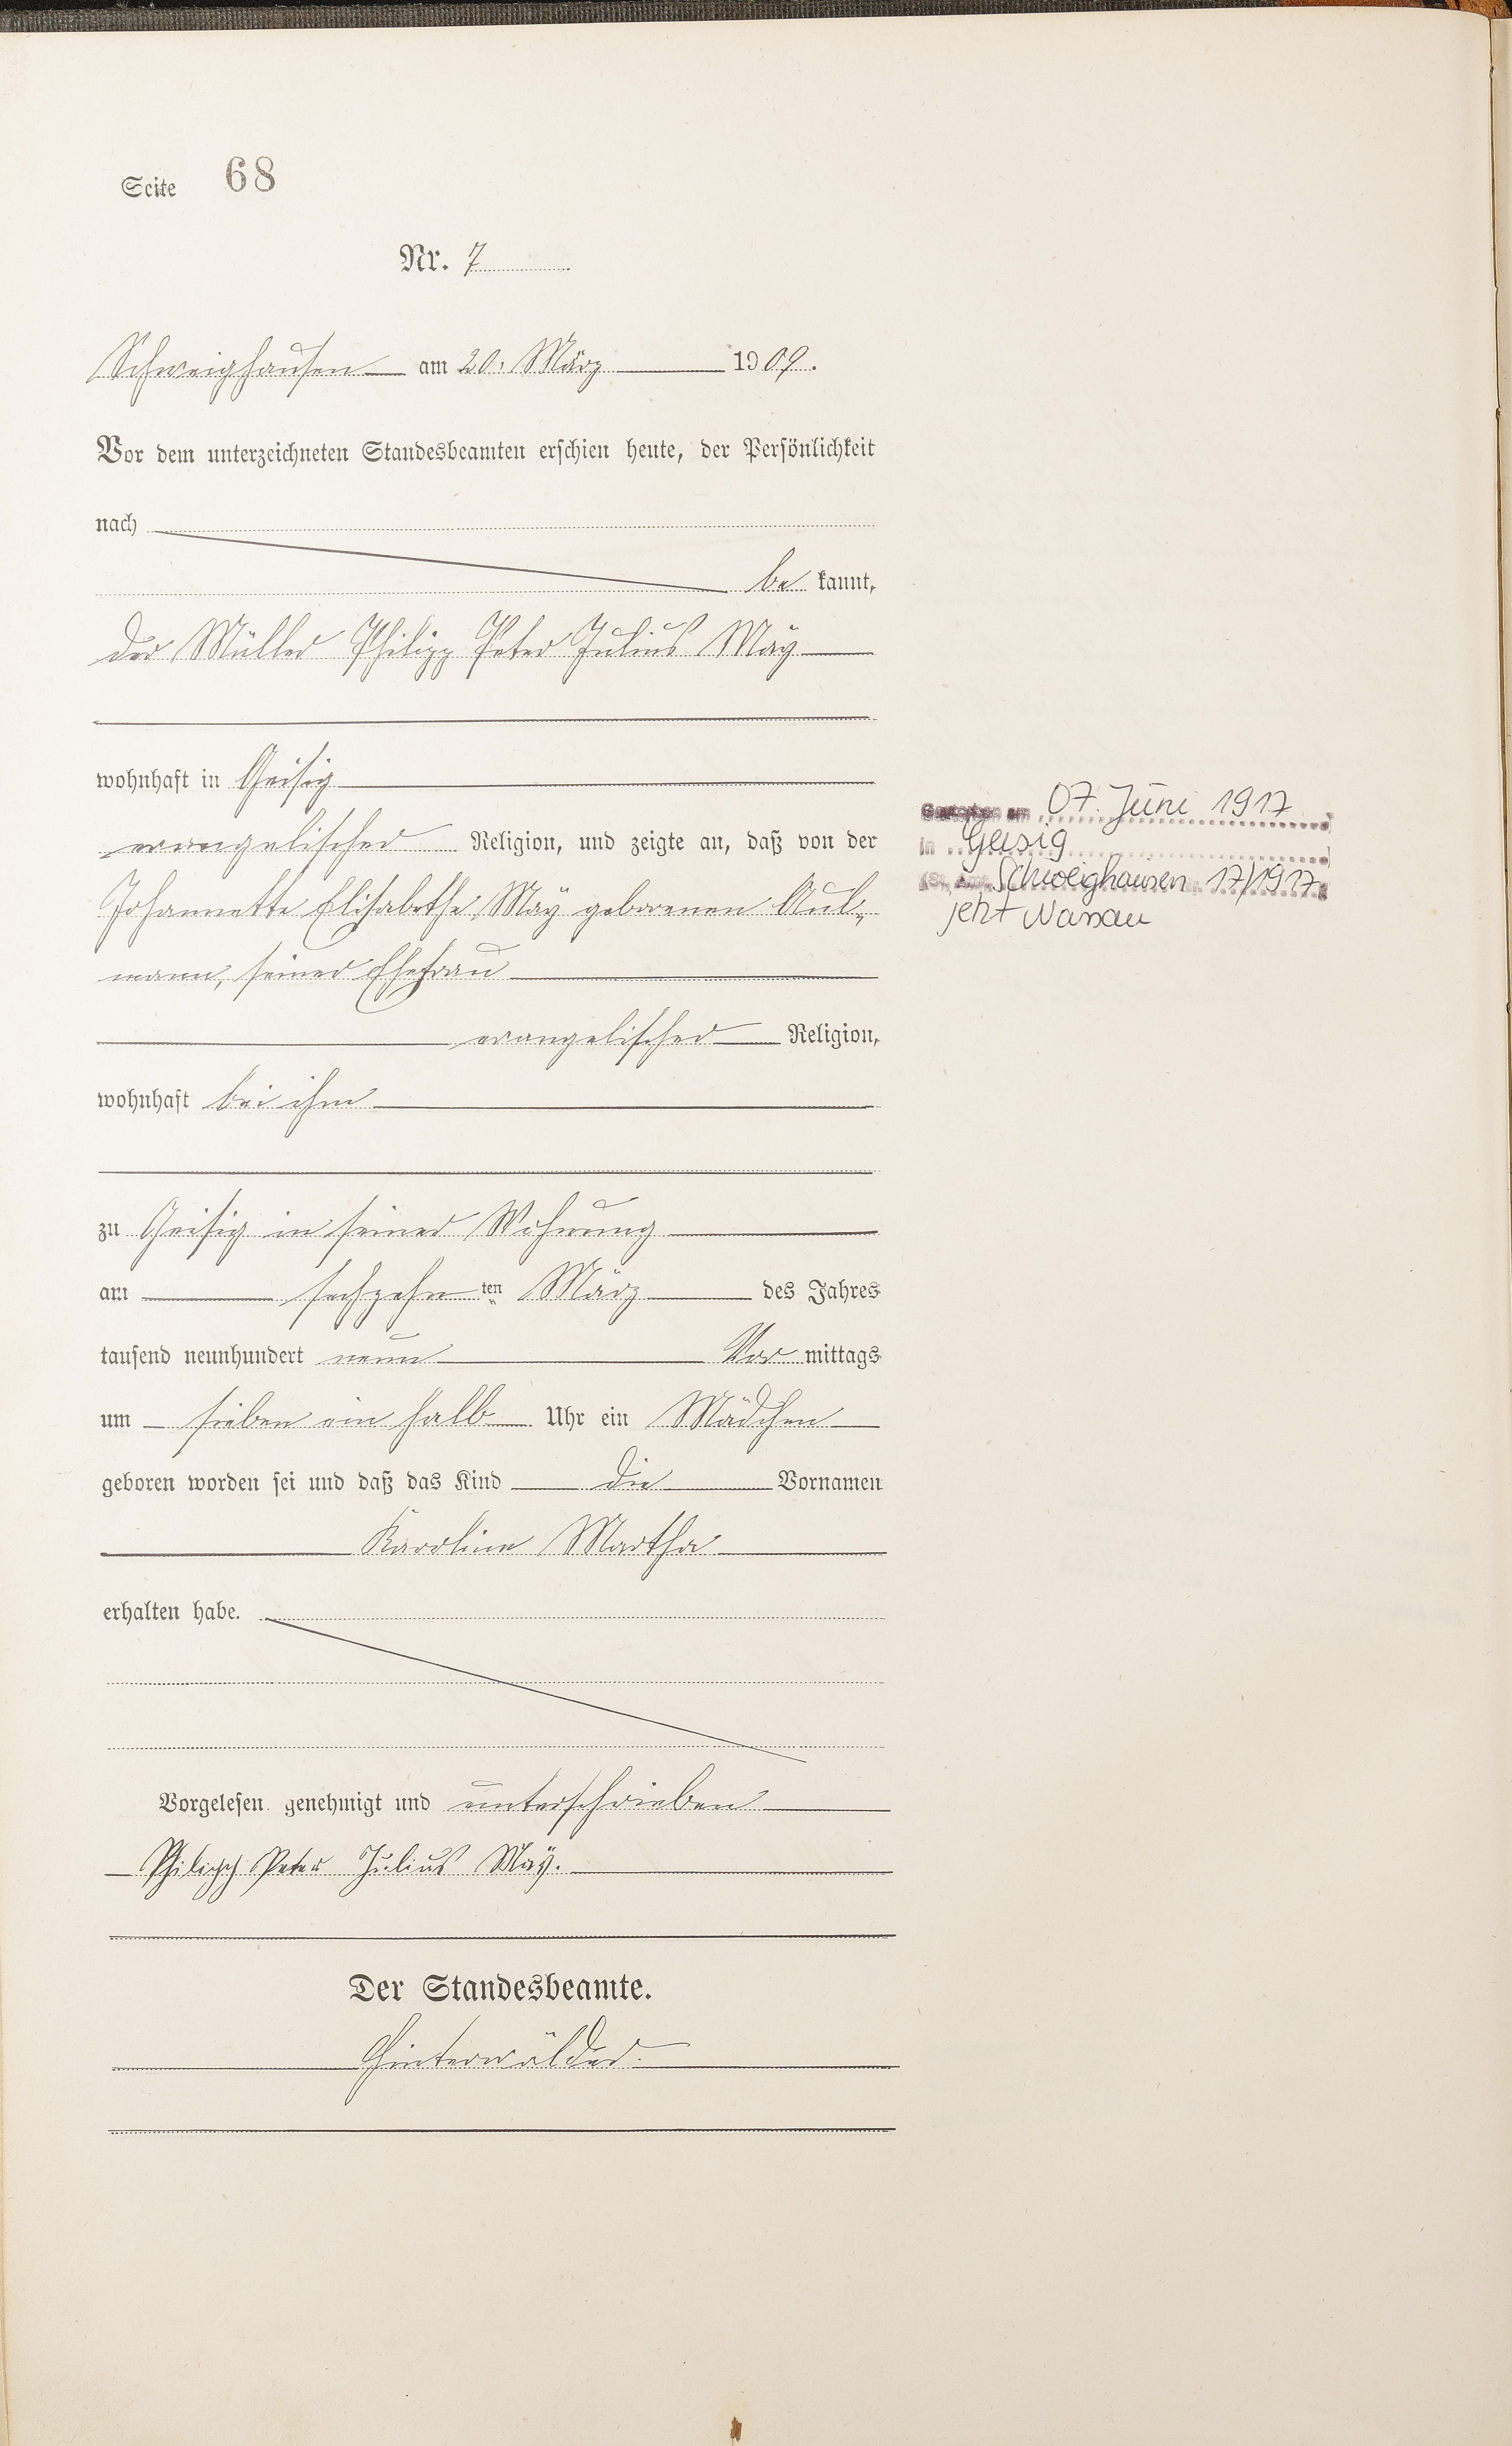 Seite 68
Nr. 7
Schweighausen am 20. März 1909.
Vor dem unterzeichneten Standesbeamten erschien heute, der Persönlichkeit
nach
be kannt,
der Müller Philipp Peter Julius Maÿ
wohnhaft in Geisig
evangelischer Religion, und zeigte an, daß von der
Johannette Elisabethe Maÿ geborenen Aul-
mann, seiner Ehefrau
evangelischer Religion,
wohnhaft bei ihm
zu Geisig in seiner Wohnung
am sechzehn ten März des Jahres
tausend neunhundert neun Vor mittags
um sieben ein halb Uhr ein Mädchen
geboren worden sei und daß das Kind die Vornamen
Karoline Martha
erhalten habe.
Vorgelesen genehmigt und unterschrieben
Philipp Peter Julius Maÿ.
Der Standesbeamte.
Hinterwälder.
Gestorben am 07. Juni 1917
in Geisig
(St. Amt Schweighausen 17/1917
jetzt Nassau